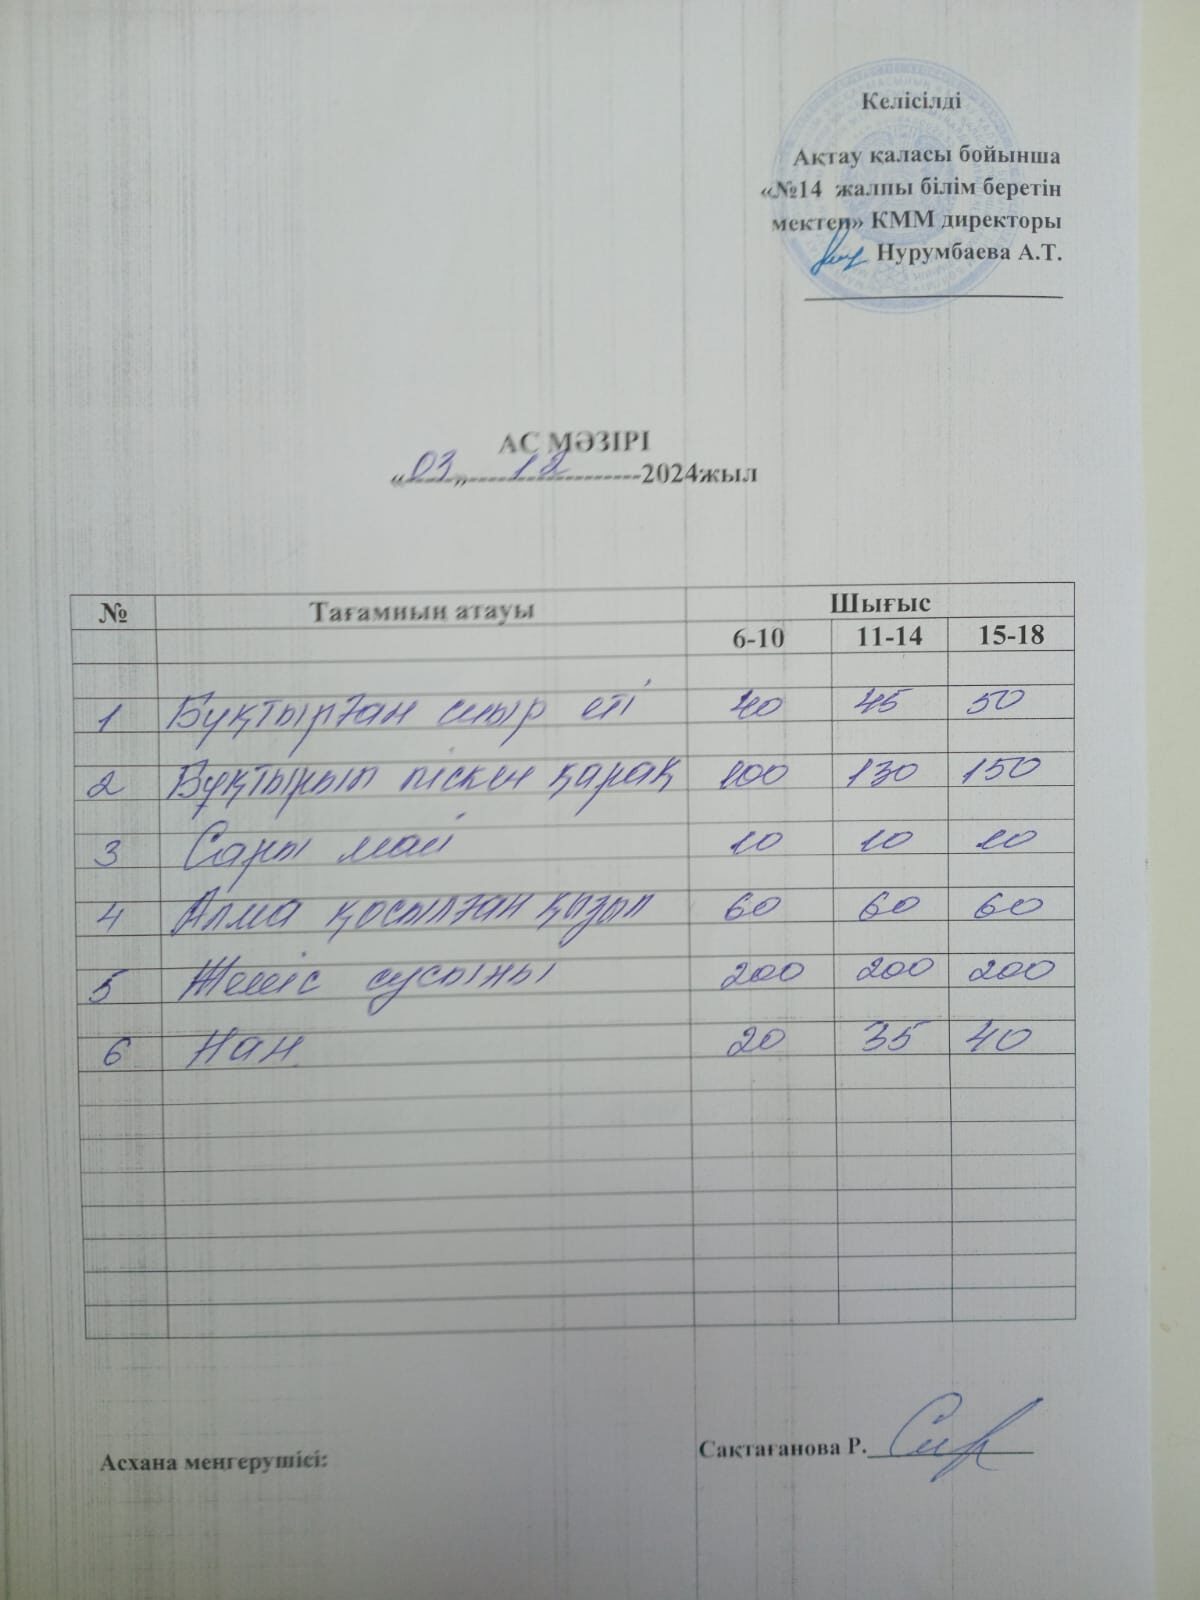 Келісілді
Ақтау қаласы бойынша
«№14 жалпы білім беретін
мектеп» КММ директоры
Нурумбаева А.Т.
АС МӘЗІРІ
«03» 12 2024жыл
№ Тағамның атауы Шығыс
6-10 11-14 15-18
1 Бұқтырған сиыр еті 40 45 50
2 Бұқтырып піскен қарақ 100 130 150
3 Сары май 10 10 10
4 Алма қосылған қызыл 60 60 60
5 Жеміс сусыны 200 200 200
6 Нан 20 35 40
Асхана меңгерушісі: Сақтағанова Р.